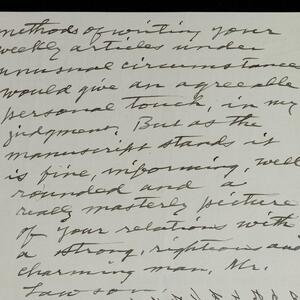 methods of writing your
weekly articles under
unusual circumstances
would give an agreeable
personal touch, in my
judgment. But as the
manuscript stands it
is fine, informing, well
rounded and a
really masterly picture
of your relations with
a strong, righteous and
charming man, Mr.
Lawson.